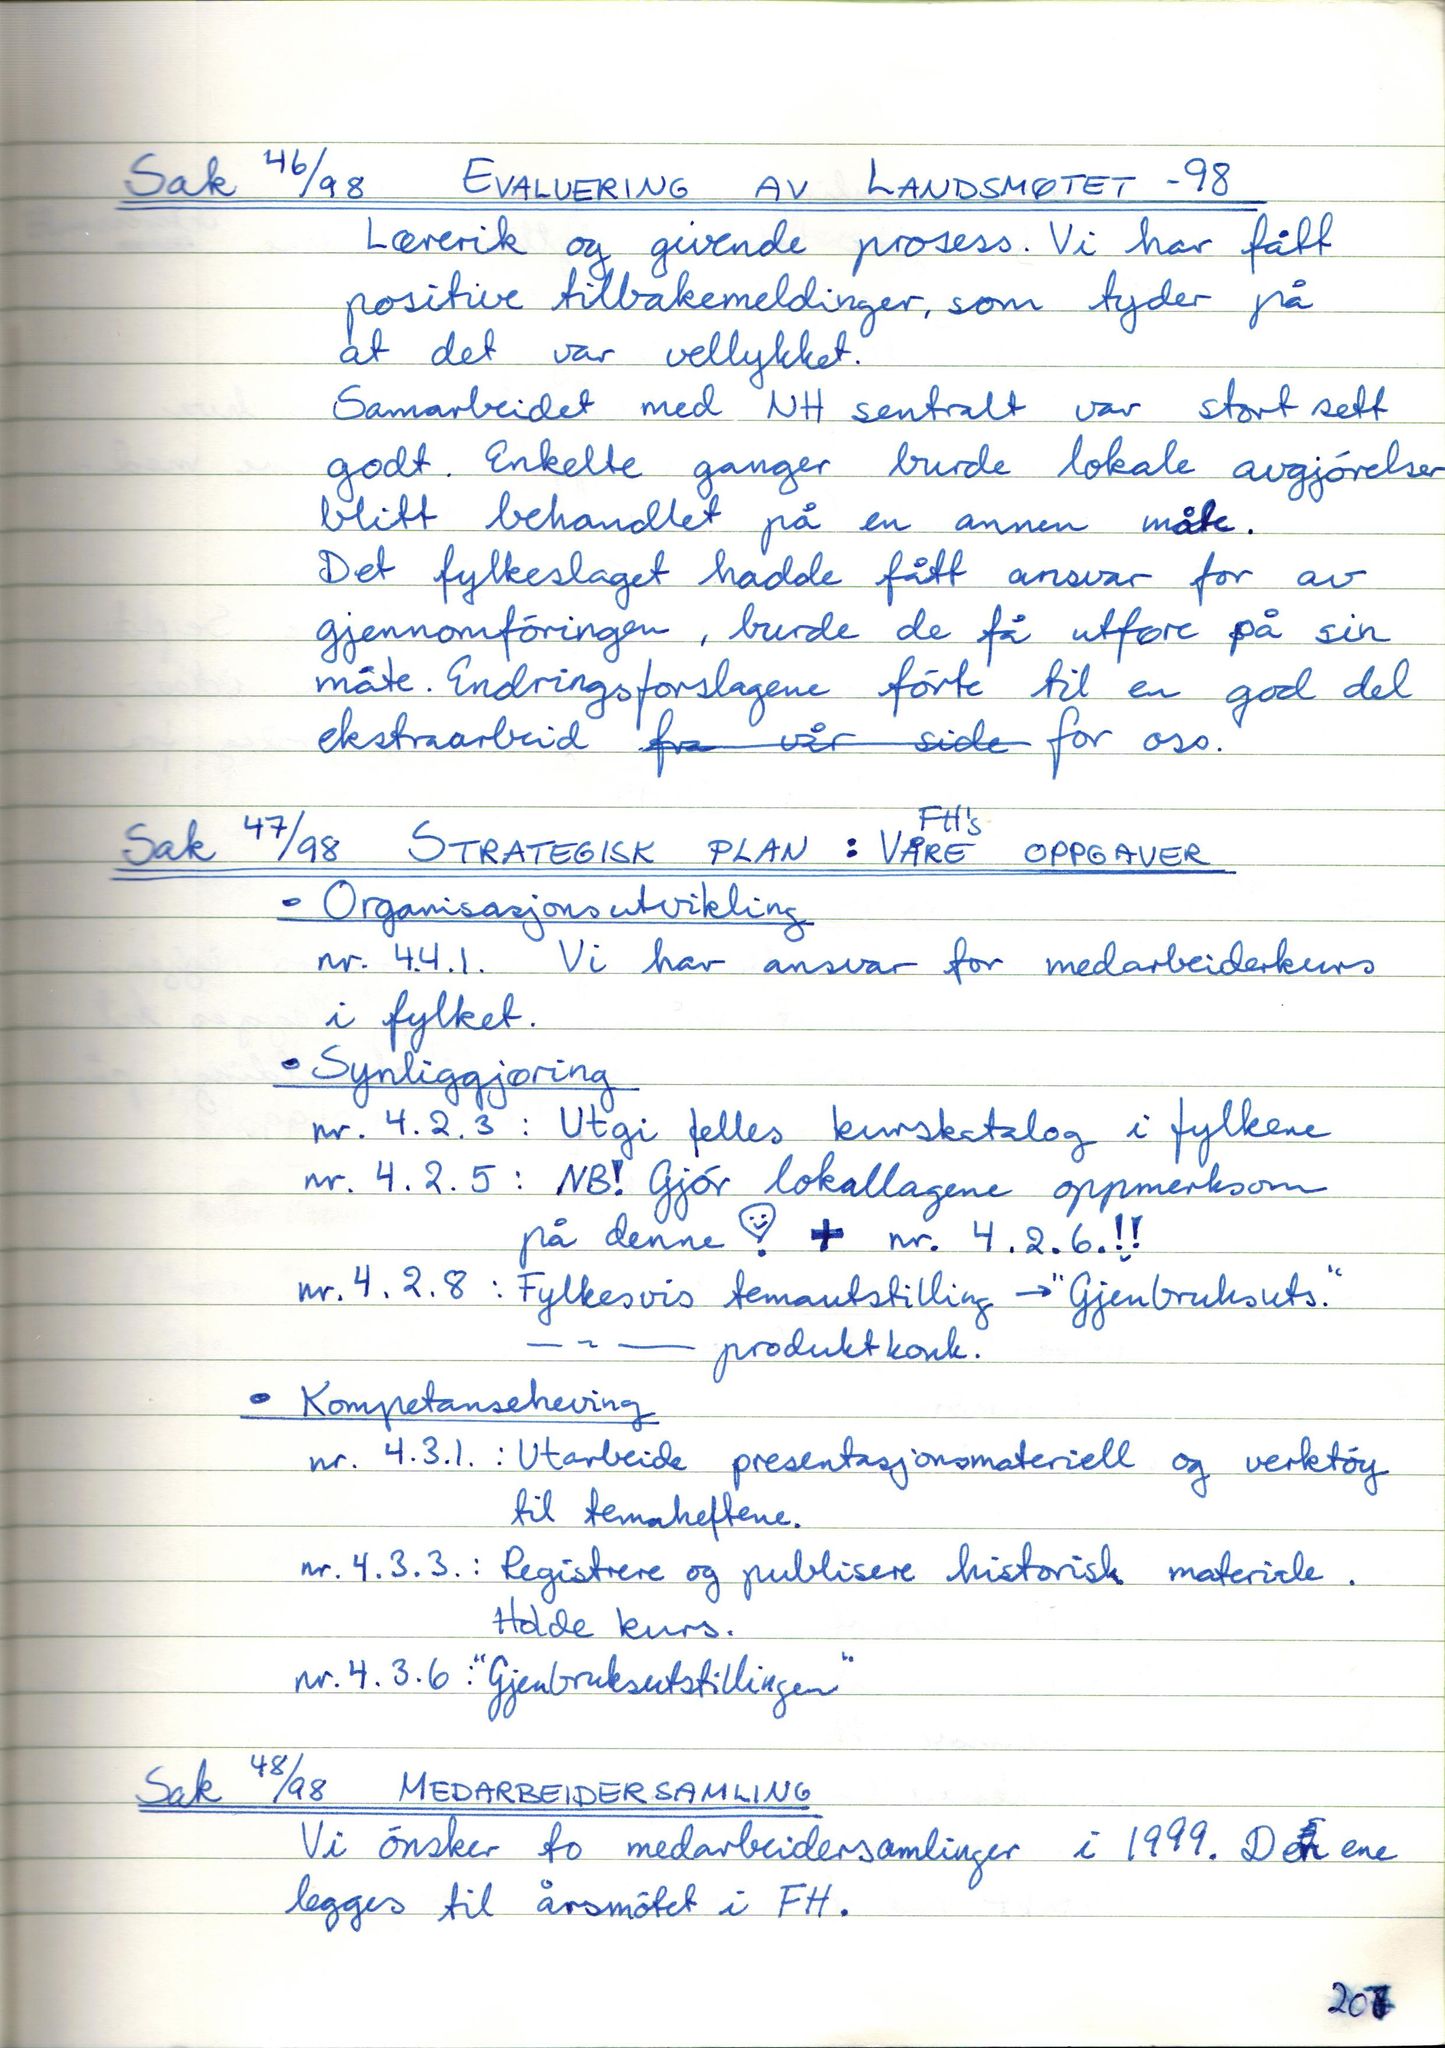 Sak 46/98 EVALUERING AV LANDSMØTET -98
Lærerik og givende prosess. Vi har fått
positive tilbakemeldinger, som tyder på
at det var vellykket.
Samarbeidet med NH sentralt var stort sett
godt. Enkelte ganger burde lokale avgjórelser
blitt behandlet på en annen måte.
Det fylkeslaget hadde fått ansvar for av
gjennomfóringen, burde de få utføre på sin
måte. Endringsforslagene fórte til en god del
ekstraarbeid fra vår side for oss.
FH's
Sak 47/98 STRATEGISK PLAN : VÅRE OPPGAVER
• Organisasjonsutvikling
nr. 4.4.1. Vi har ansvar for medarbeiderkurs
i fylket.
• Synliggjøring
nr. 4.2.3 : Utgi felles kurskatalog i fylkene
nr. 4.2.5 : NB! Gjór lokallagene oppmerksom
på denne! + nr. 4.2.6.!!
nr. 4.2.8 : Fylkesvis temautstilling → "Gjenbruksuts."
— " — produktkonk.
• Kompetanseheving
nr. 4.3.1. : Utarbeide presentasjonsmateriell og verktóy
til temaheftene.
nr. 4.3.3. : Registrere og publisere historisk materiale.
Holde kurs.
nr. 4.3.6 : "Gjenbruksutstillingen"
Sak 48/98 MEDARBEIDERSAMLING
Vi ónsker to medarbeidersamlinger i 1999. Den ene
legges til årsmótet i FH.
207